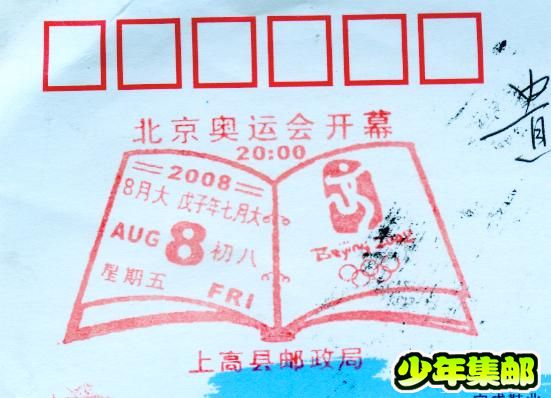 北京奥运会开幕
20:00
2008
8月大 戊子年七月大
AUG 8 初八
星期五 FRI
Beijing 2008
上高县邮政局
贵
少年集邮